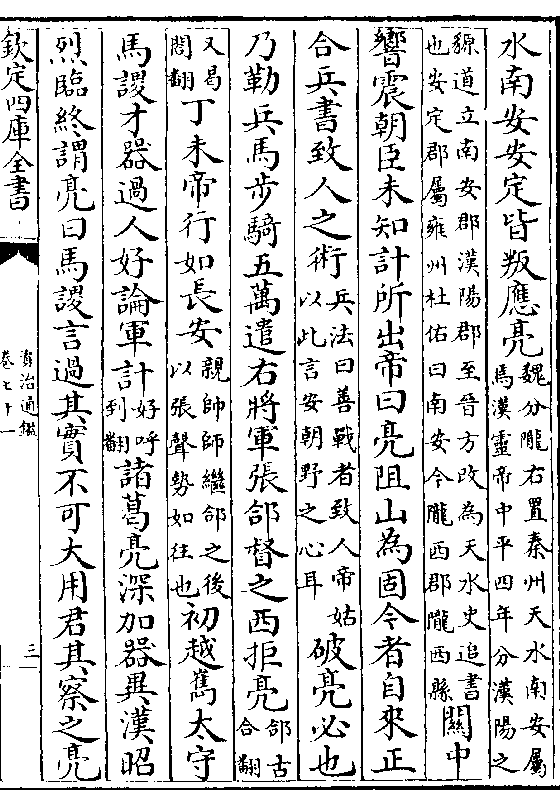 水南安安定皆叛應亮魏分隴右置秦州天水南安屬焉漢靈帝中平四年分漢陽之
豲道立南安郡漢陽郡至晉方改為天水史追書也安定郡屬雍州杜佑曰南安今隴西郡隴西縣關中
響震朝臣未知計所出帝曰亮阻山為固今者自來正
合兵書致人之術兵法曰善戰者致人帝姑以此言安朝野之心耳破亮必也
乃勒兵馬步騎五萬遣右將軍張郃督之西拒亮郃古合翻
又曷閤翻丁未帝行如長安親帥師繼郃之後以張聲勢如往也初越巂太守
馬謖才器過人好論軍計好呼到翻諸葛亮深加器異漢昭
烈臨終謂亮曰馬謖言過其實不可大用君其察之亮
欽定四庫全書
資治通鑑
卷七十一
三